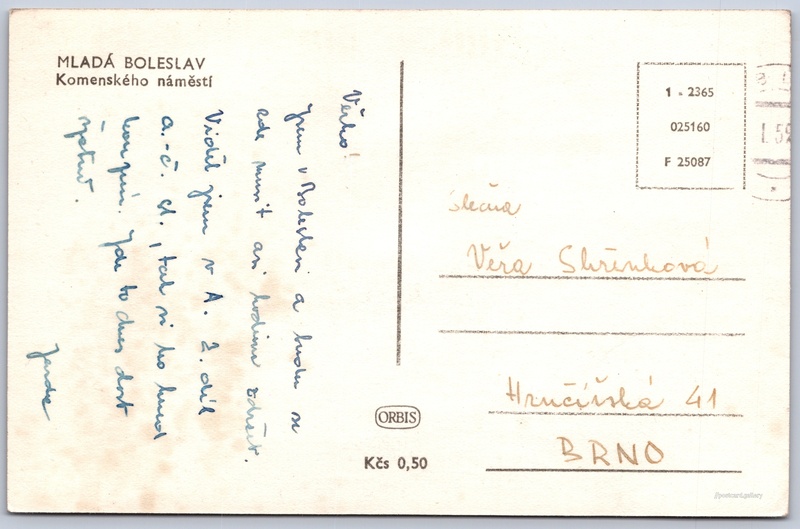 MLADÁ BOLESLAV
Komenského náměstí
Věrko!
Jsem v Boleslavi a budu se
zde muset asi hodinu zdržet.
Viděl jsem v A. 2. díl
a.-č. sl., tak si ho hned
koupím. Jde to dnes dost
špatně.
Jarda
1 - 2365
025160
F 25087
slečna
Věra Skřínková
Hrnčířská 41
BRNO
ORBIS
Kčs 0,50